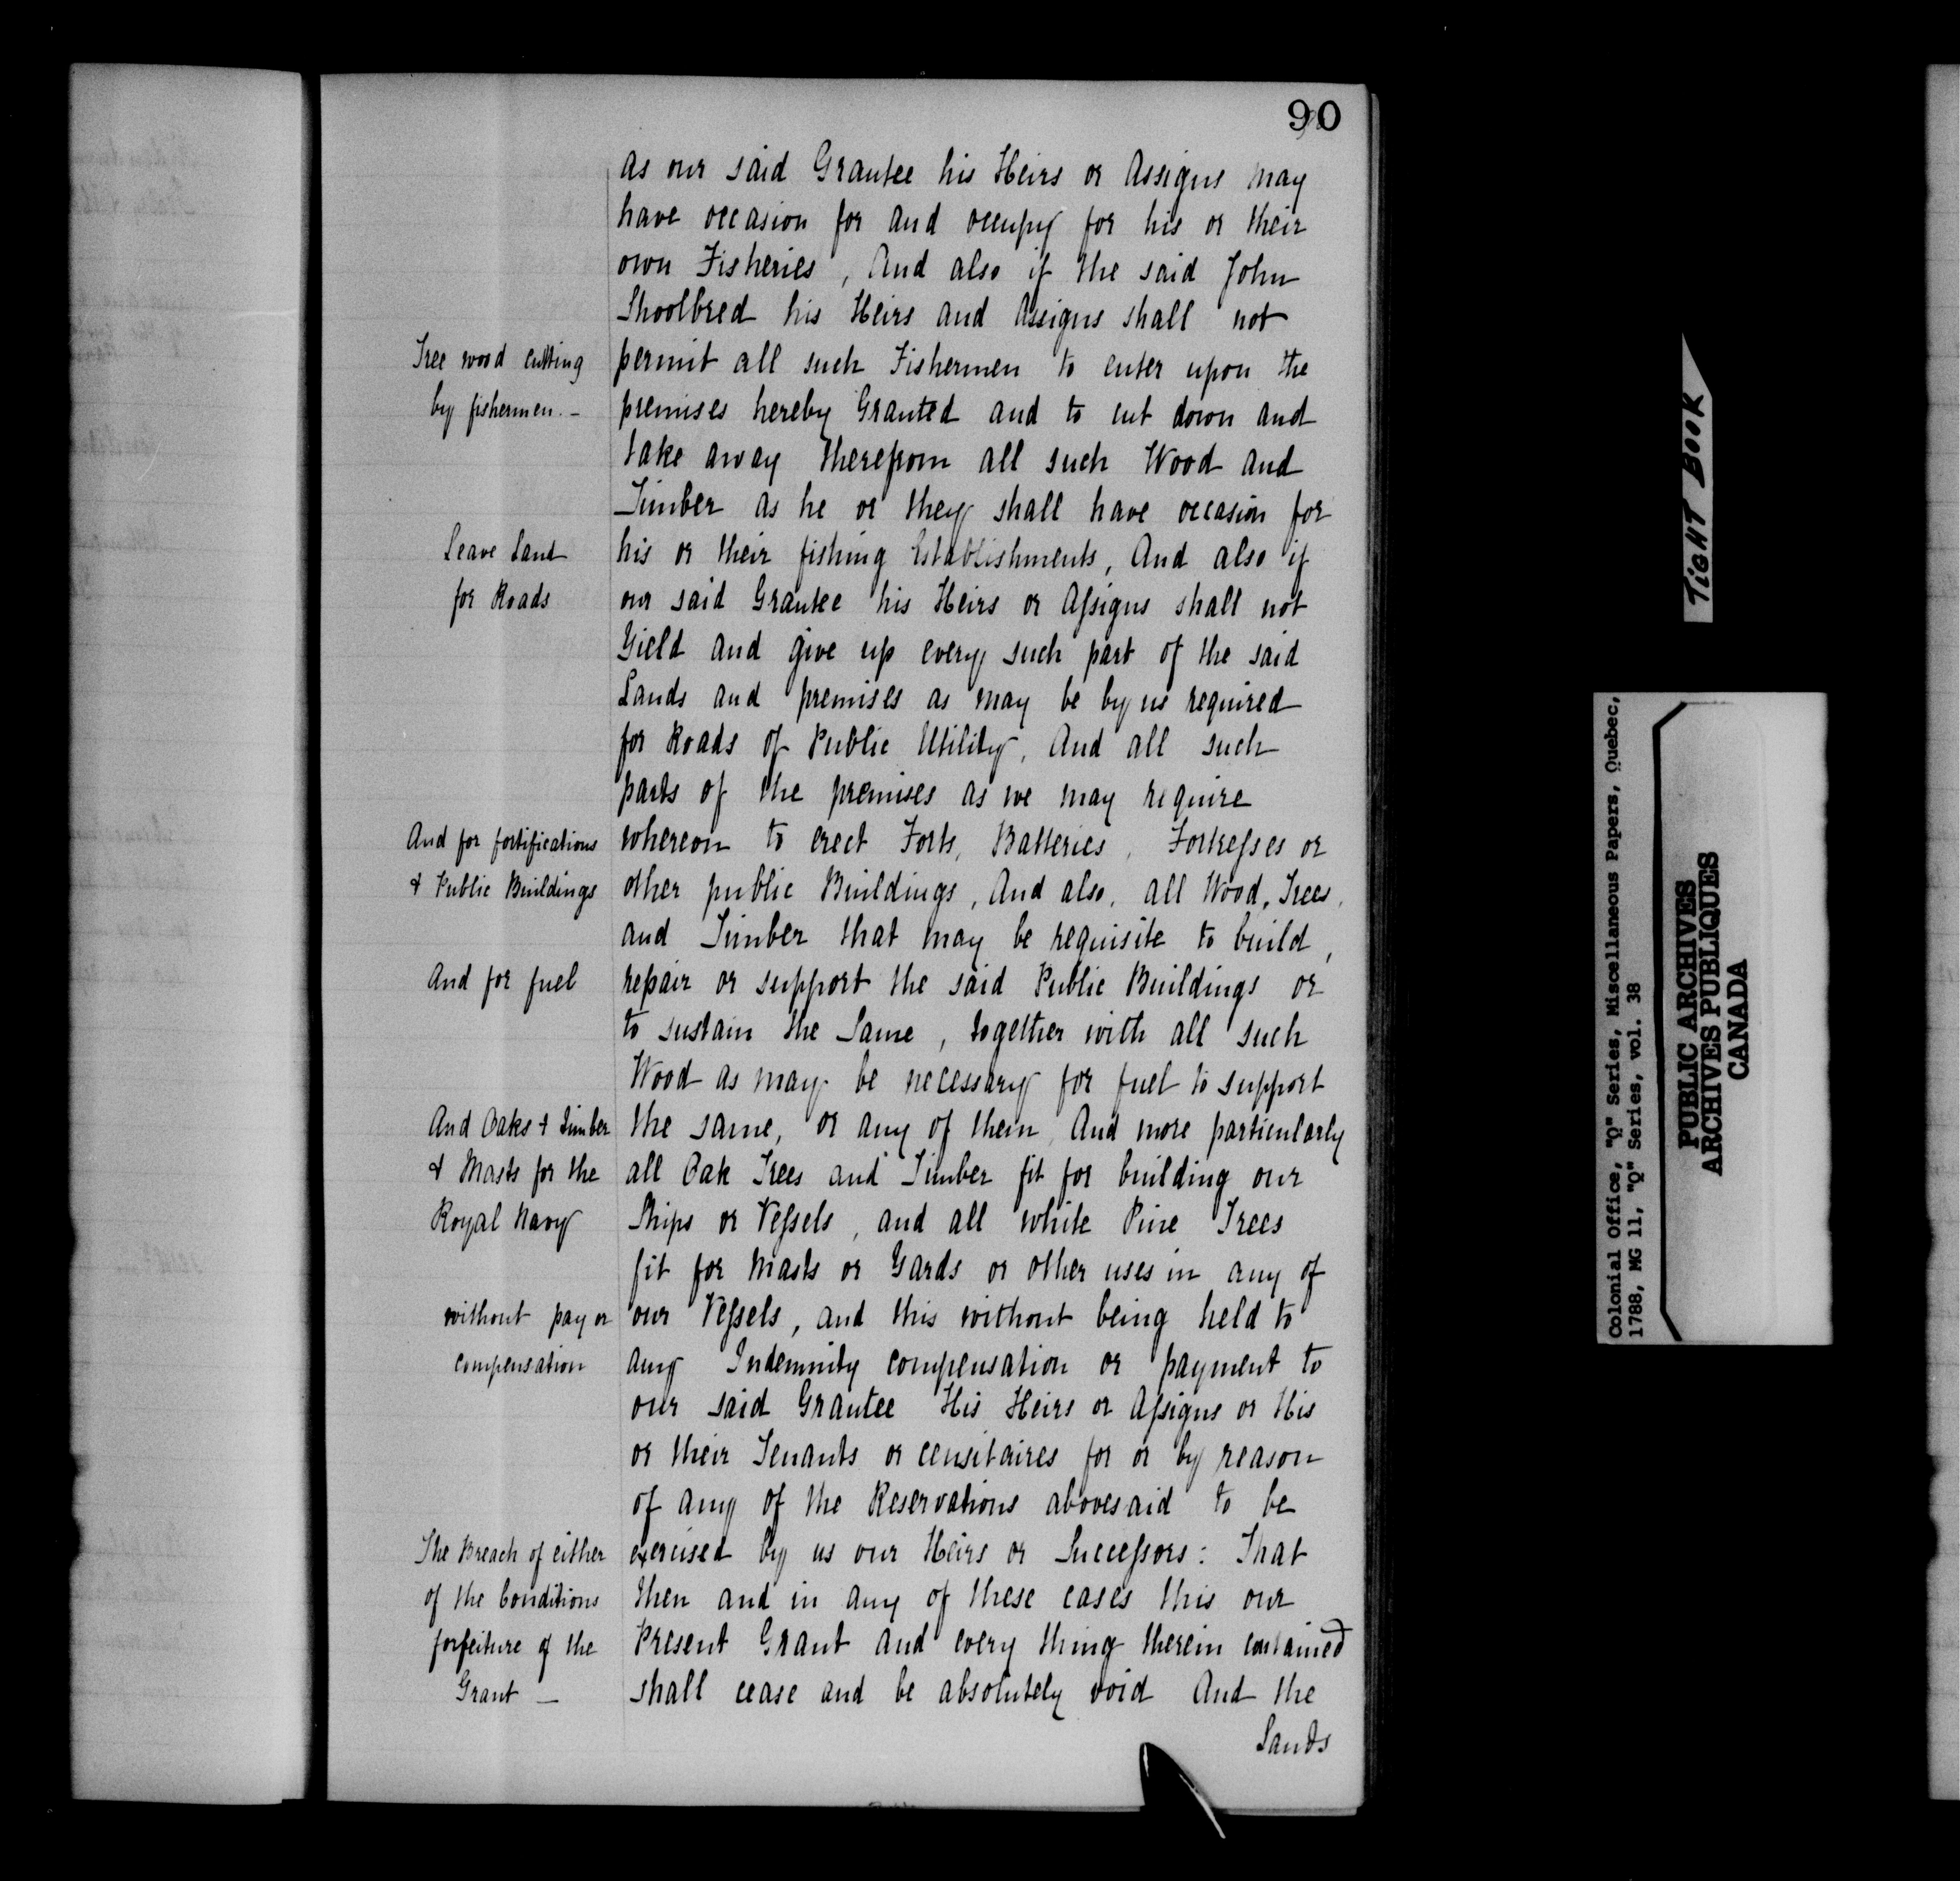 90
as our said Grantee his Heirs or Assigns may
have occasion for and occupy for his or their
own Fisheries, And also if the said John
Shoolbred his Heirs and Assigns shall not
Free wood cutting
by fishermen.-
permit all such Fishermen to enter upon the
premises hereby Granted and to cut down and
take away therefrom all such Wood and
Timber as he or they shall have occasion for
Leave Land
for Roads
his or their fishing Establishments, And also if
our said Grantee his Heirs or Assigns shall not
Yield and give up every such part of the said
Lands and premises as may be by us required
for Roads of Public Utility, And all such
parts of the premises as we may require
And for fortifications
& Public Buildings
whereon to erect Forts, Batteries, Fortresses or
other public Buildings, And also, all Wood, Trees,
and Timber that may be requisite to build,
And for fuel
repair or support the said Public Buildings or
to sustain the Same, together with all such
Wood as may be necessary for fuel to support
And Oaks & Timber
& Masts for the
Royal Navy
the same, or any of them, And more particularly
all Oak Trees and Timber fit for building our
Ships or Vessels, and all white Pine Trees
fit for Masts or Yards or other uses in any of
without pay or
compensation
our Vessels, and this without being held to
any Indemnity compensation or payment to
our said Grantee His Heirs or Assigns or His
or their Tenants or censitaires for or by reason
of any of the Reservations abovesaid to be
The Breach of either
of the Conditions
forfeiture of the
Grant -
exercised by us our Heirs or Successors: That
then and in any of these cases this our
Present Grant and every thing therein contained
shall cease and be absolutely void And the
Lands
TIGHT BOOK
Colonial Office, "Q" Series, Miscellaneous Papers, Quebec,
1788, MG 11, "Q" Series, vol. 38
PUBLIC ARCHIVES
ARCHIVES PUBLIQUES
CANADA